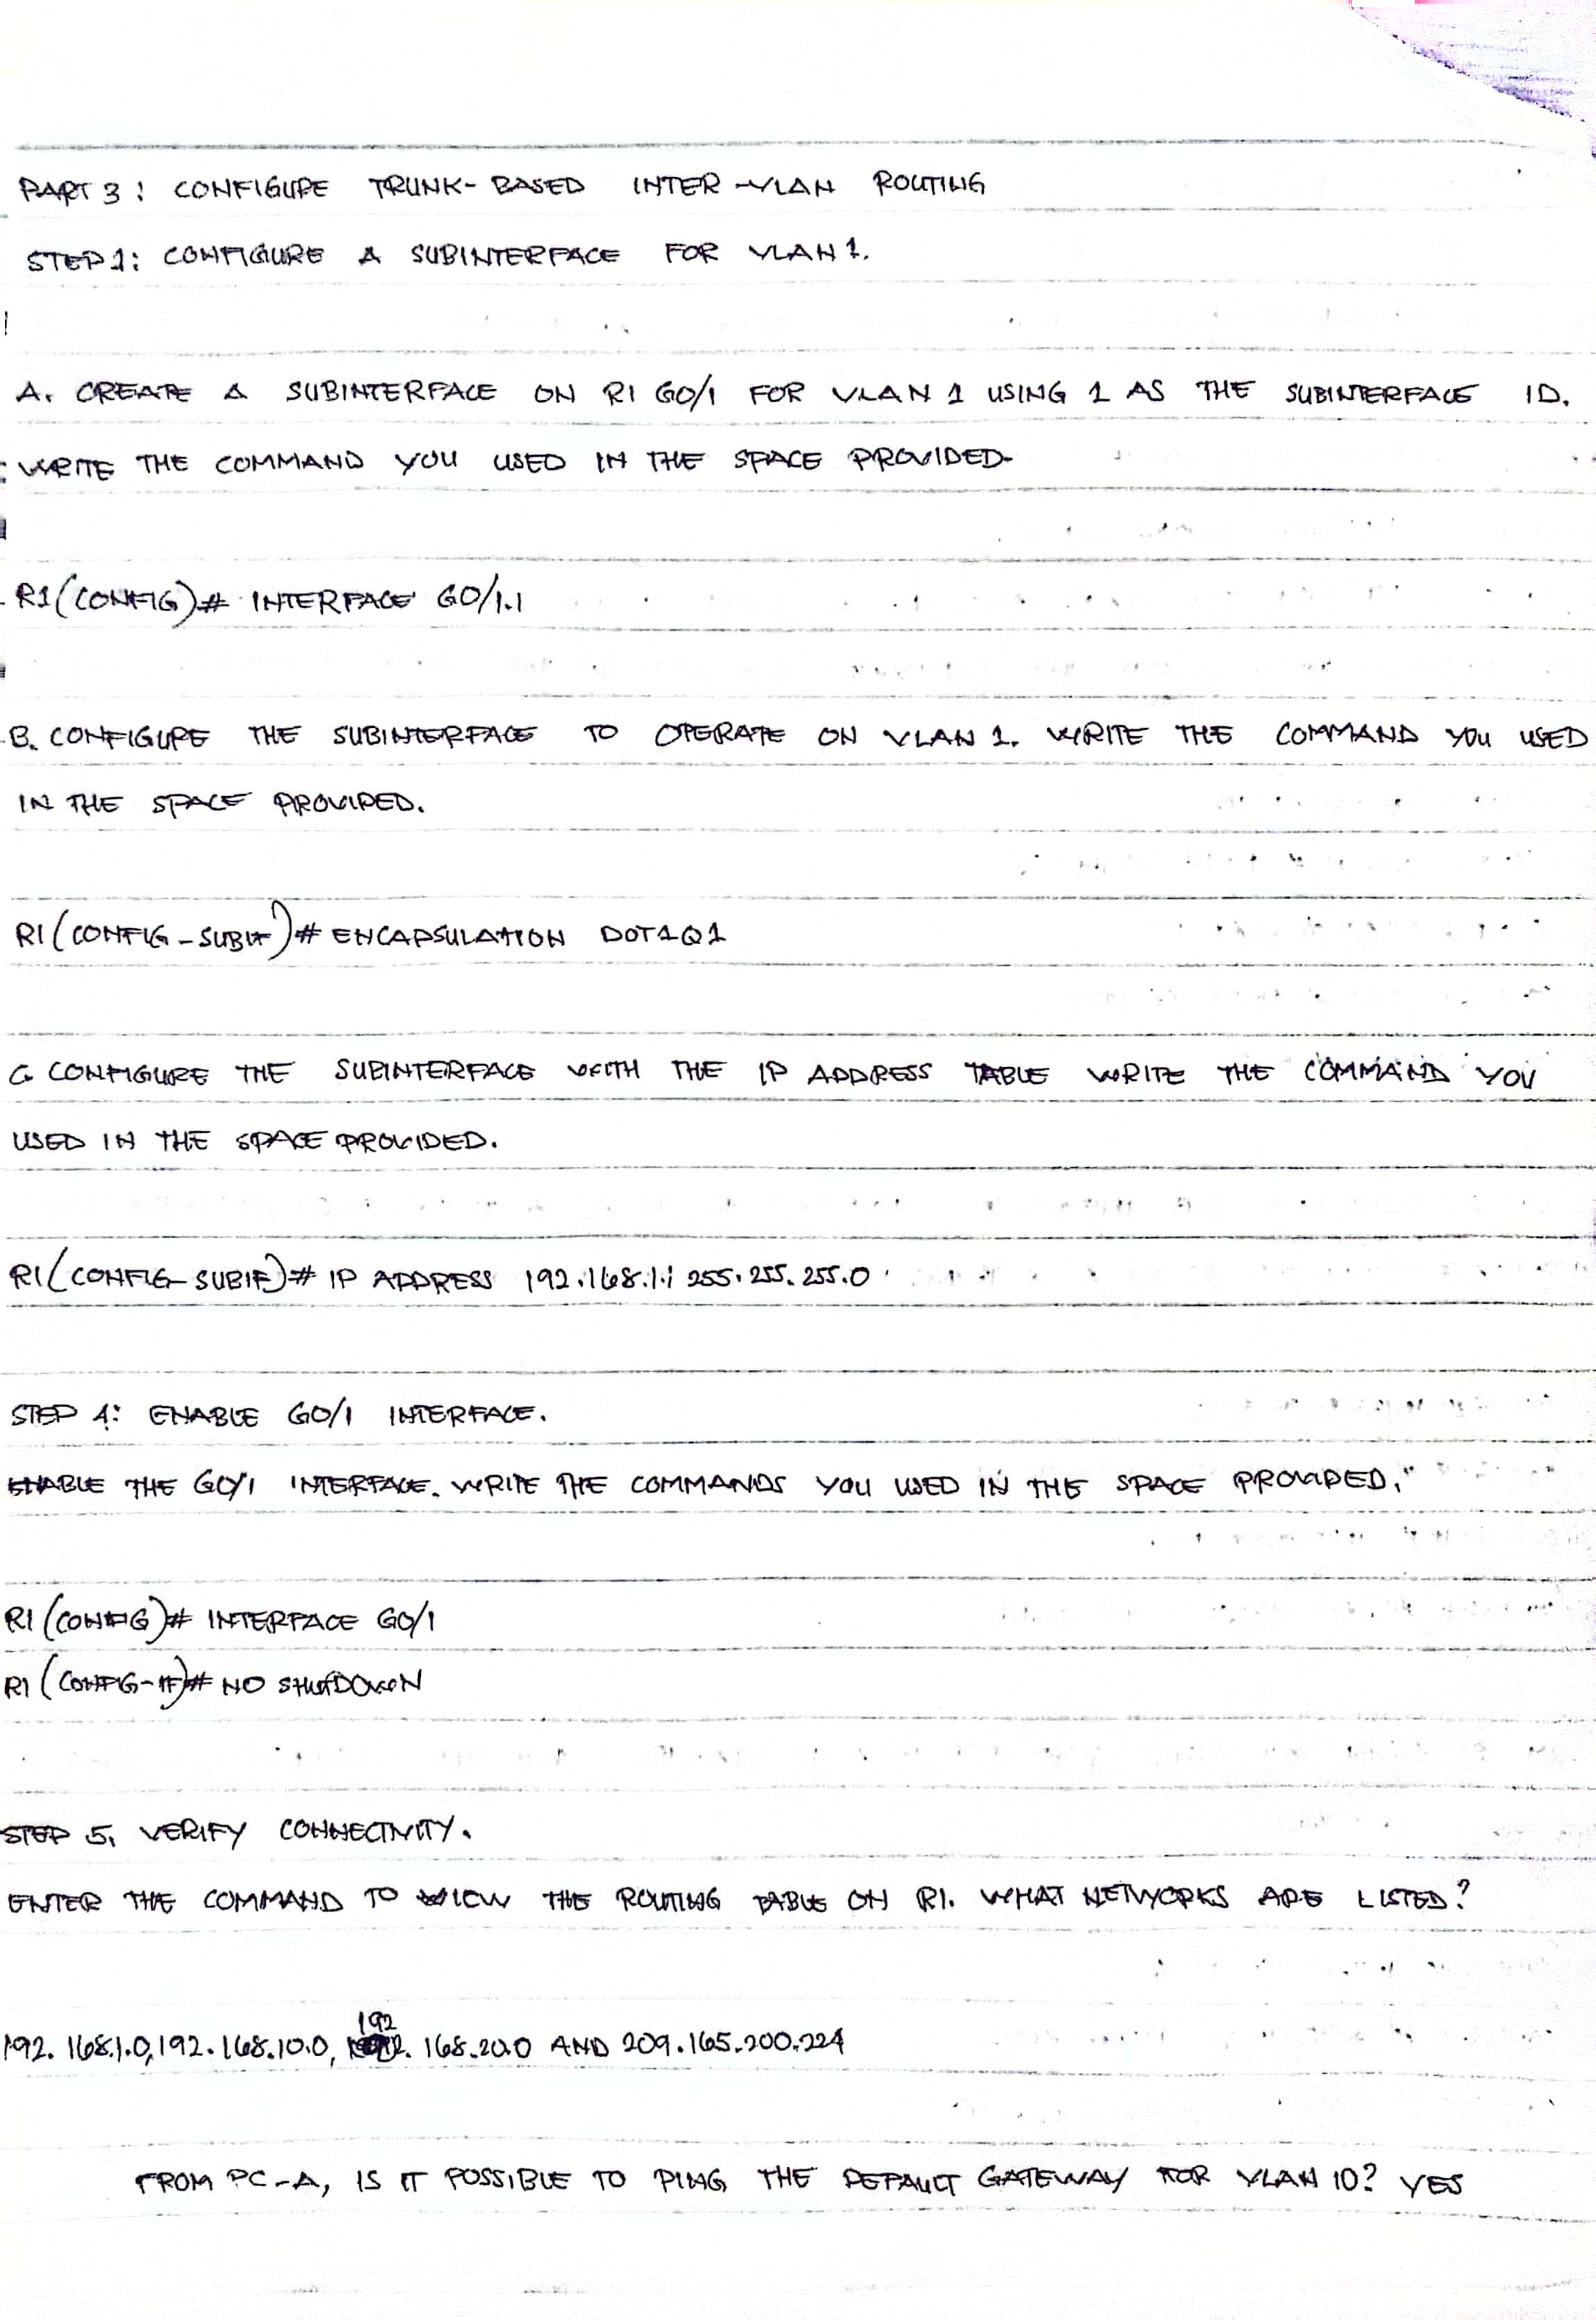 PART 3: CONFIGURE TRUNK-BASED INTER-VLAN ROUTING
STEP 1: CONFIGURE A SUBINTERFACE FOR VLAN 1.
A. CREATE A SUBINTERFACE ON R1 G0/1 FOR VLAN 1 USING 1 AS THE SUBINTERFACE ID.
WRITE THE COMMAND YOU USED IN THE SPACE PROVIDED.
R1(CONFIG)# INTERFACE G0/1.1
B. CONFIGURE THE SUBINTERFACE TO OPERATE ON VLAN 1. WRITE THE COMMAND YOU USED
IN THE SPACE PROVIDED.
R1(CONFIG-SUBIF)# ENCAPSULATION DOT1Q1
C. CONFIGURE THE SUBINTERFACE WITH THE IP ADDRESS TABLE WRITE THE COMMAND YOU
USED IN THE SPACE PROVIDED.
R1(CONFIG-SUBIF)# IP ADDRESS 192.168.1.1 255.255.255.0
STEP 4: ENABLE G0/1 INTERFACE.
ENABLE THE G0/1 INTERFACE. WRITE THE COMMANDS YOU USED IN THE SPACE PROVIDED.
R1(CONFIG)# INTERFACE G0/1
R1(CONFIG-IF)# NO SHUTDOWN
STEP 5. VERIFY CONNECTIVITY.
ENTER THE COMMAND TO VIEW THE ROUTING TABLE ON R1. WHAT NETWORKS ARE LISTED?
192.168.1.0, 192.168.10.0, 192.168.20.0 AND 209.165.200.224
FROM PC-A, IS IT POSSIBLE TO PING THE DEFAULT GATEWAY FOR VLAN 10? YES